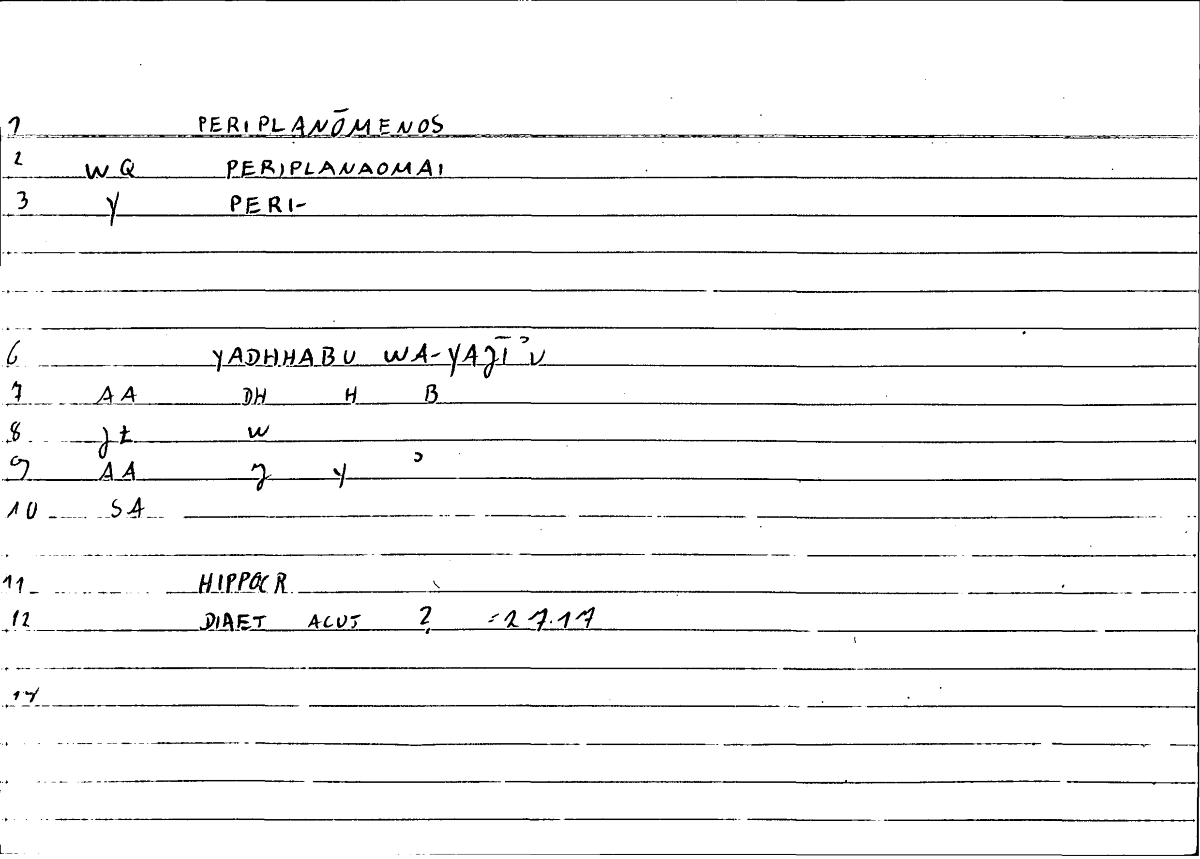 1 PERIPLANŌMENOS
2 WQ PERIPLANAOMAI
3 Y PERI-
6 YADHHABU WA-YAJĪʾU
7 AA DH H B
8 Jt W
9 AA J Y ʾ
10 SA
11 HIPPOCR
12 DIAET ACUT 27.17